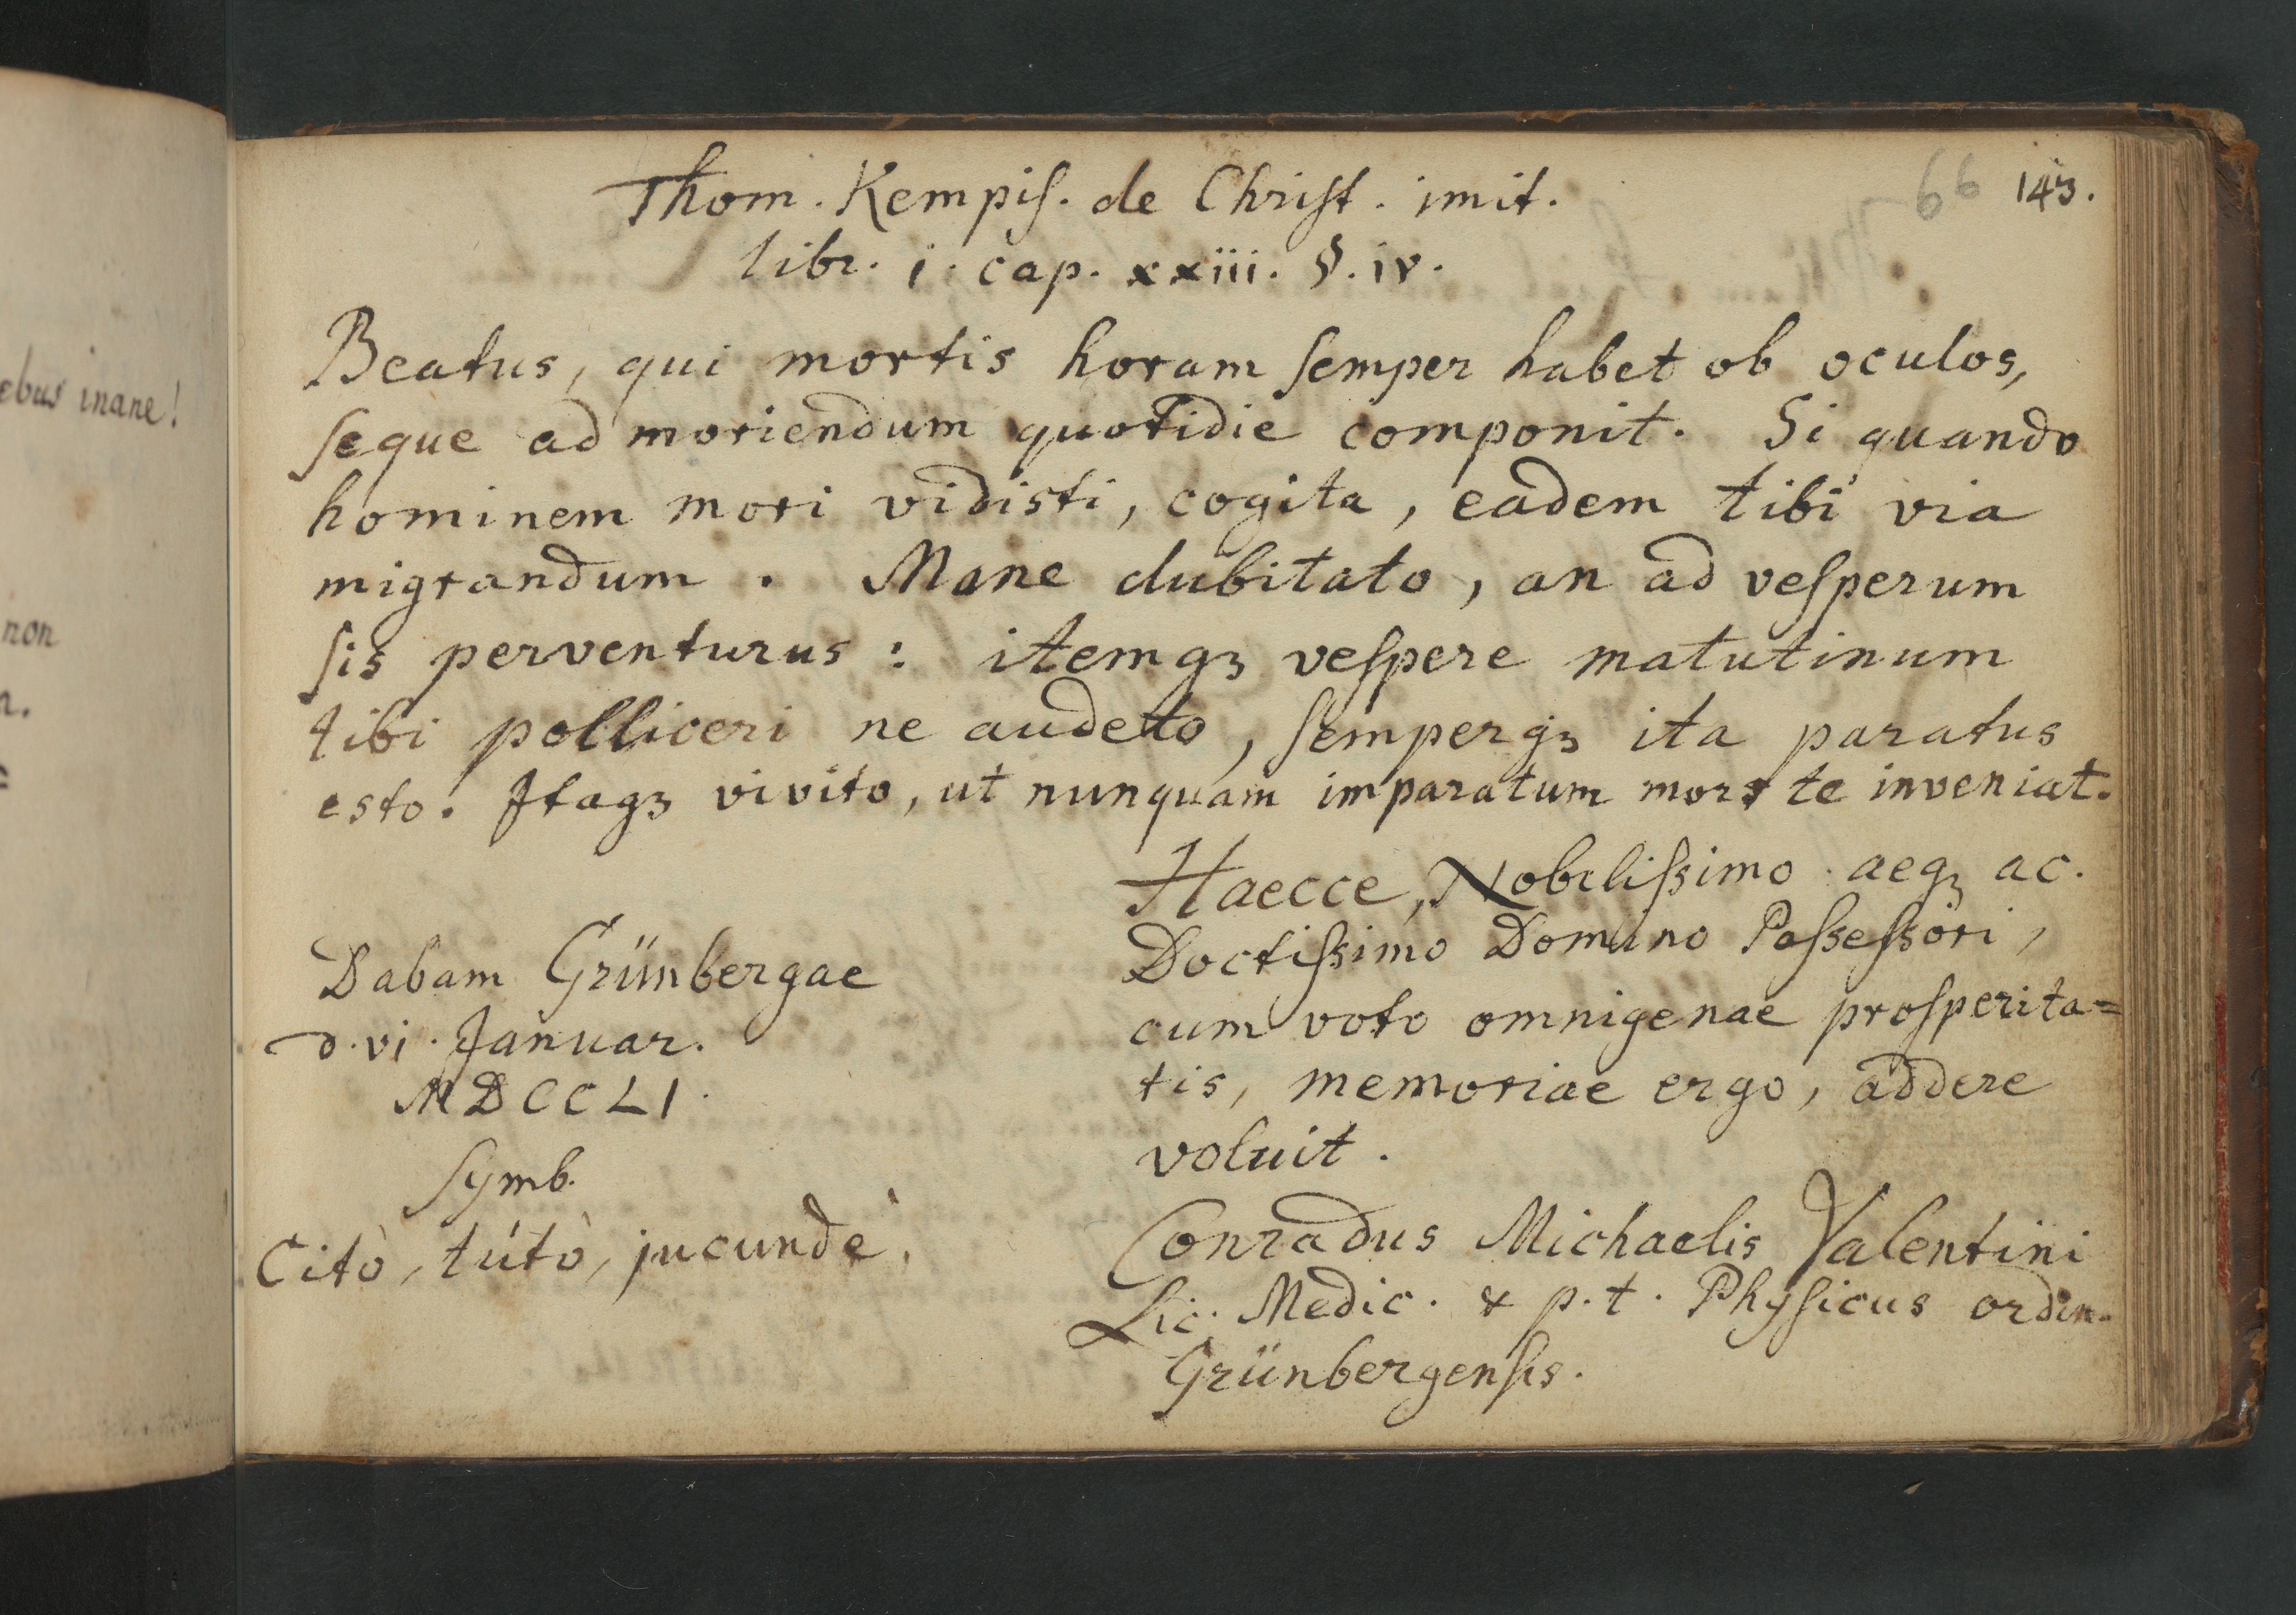 66 143.
Thom. Kempiſ. de Chriſt. imit.
libr. i. cap. xxiii. §. iv.
Beatus, qui mortis horam ſemper habet ob oculos,
ſeque ad moriendum quotidie componit. Si quando
hominem mori vidisti, cogita, eadem tibi via
migrandum. Mane dubitato, an ad veſperum
ſis perventurus: itemqꝫ veſpere matutinum
tibi polliceri ne audeto, ſemperqꝫ ita paratus
esto. Itaqꝫ vivito, ut nunquam imparatum mors te inveniat.
Haecce, Nobiliſsimo aeqꝫ ac.
Doctiſsimo Domino Poſseſsori,
cum voto omnigenae proſperita=
tis, memoriae ergo, addere
voluit.
Conradus Michaelis Valentini
Lic. Medic. & p. t. Phyſicus ordin.
Grünbergenſis.
Dabam Grünbergae
d. vi. Januar.
MDCCLI.
Symb.
Citò, tútò, jucundè.
ebus inane!
non